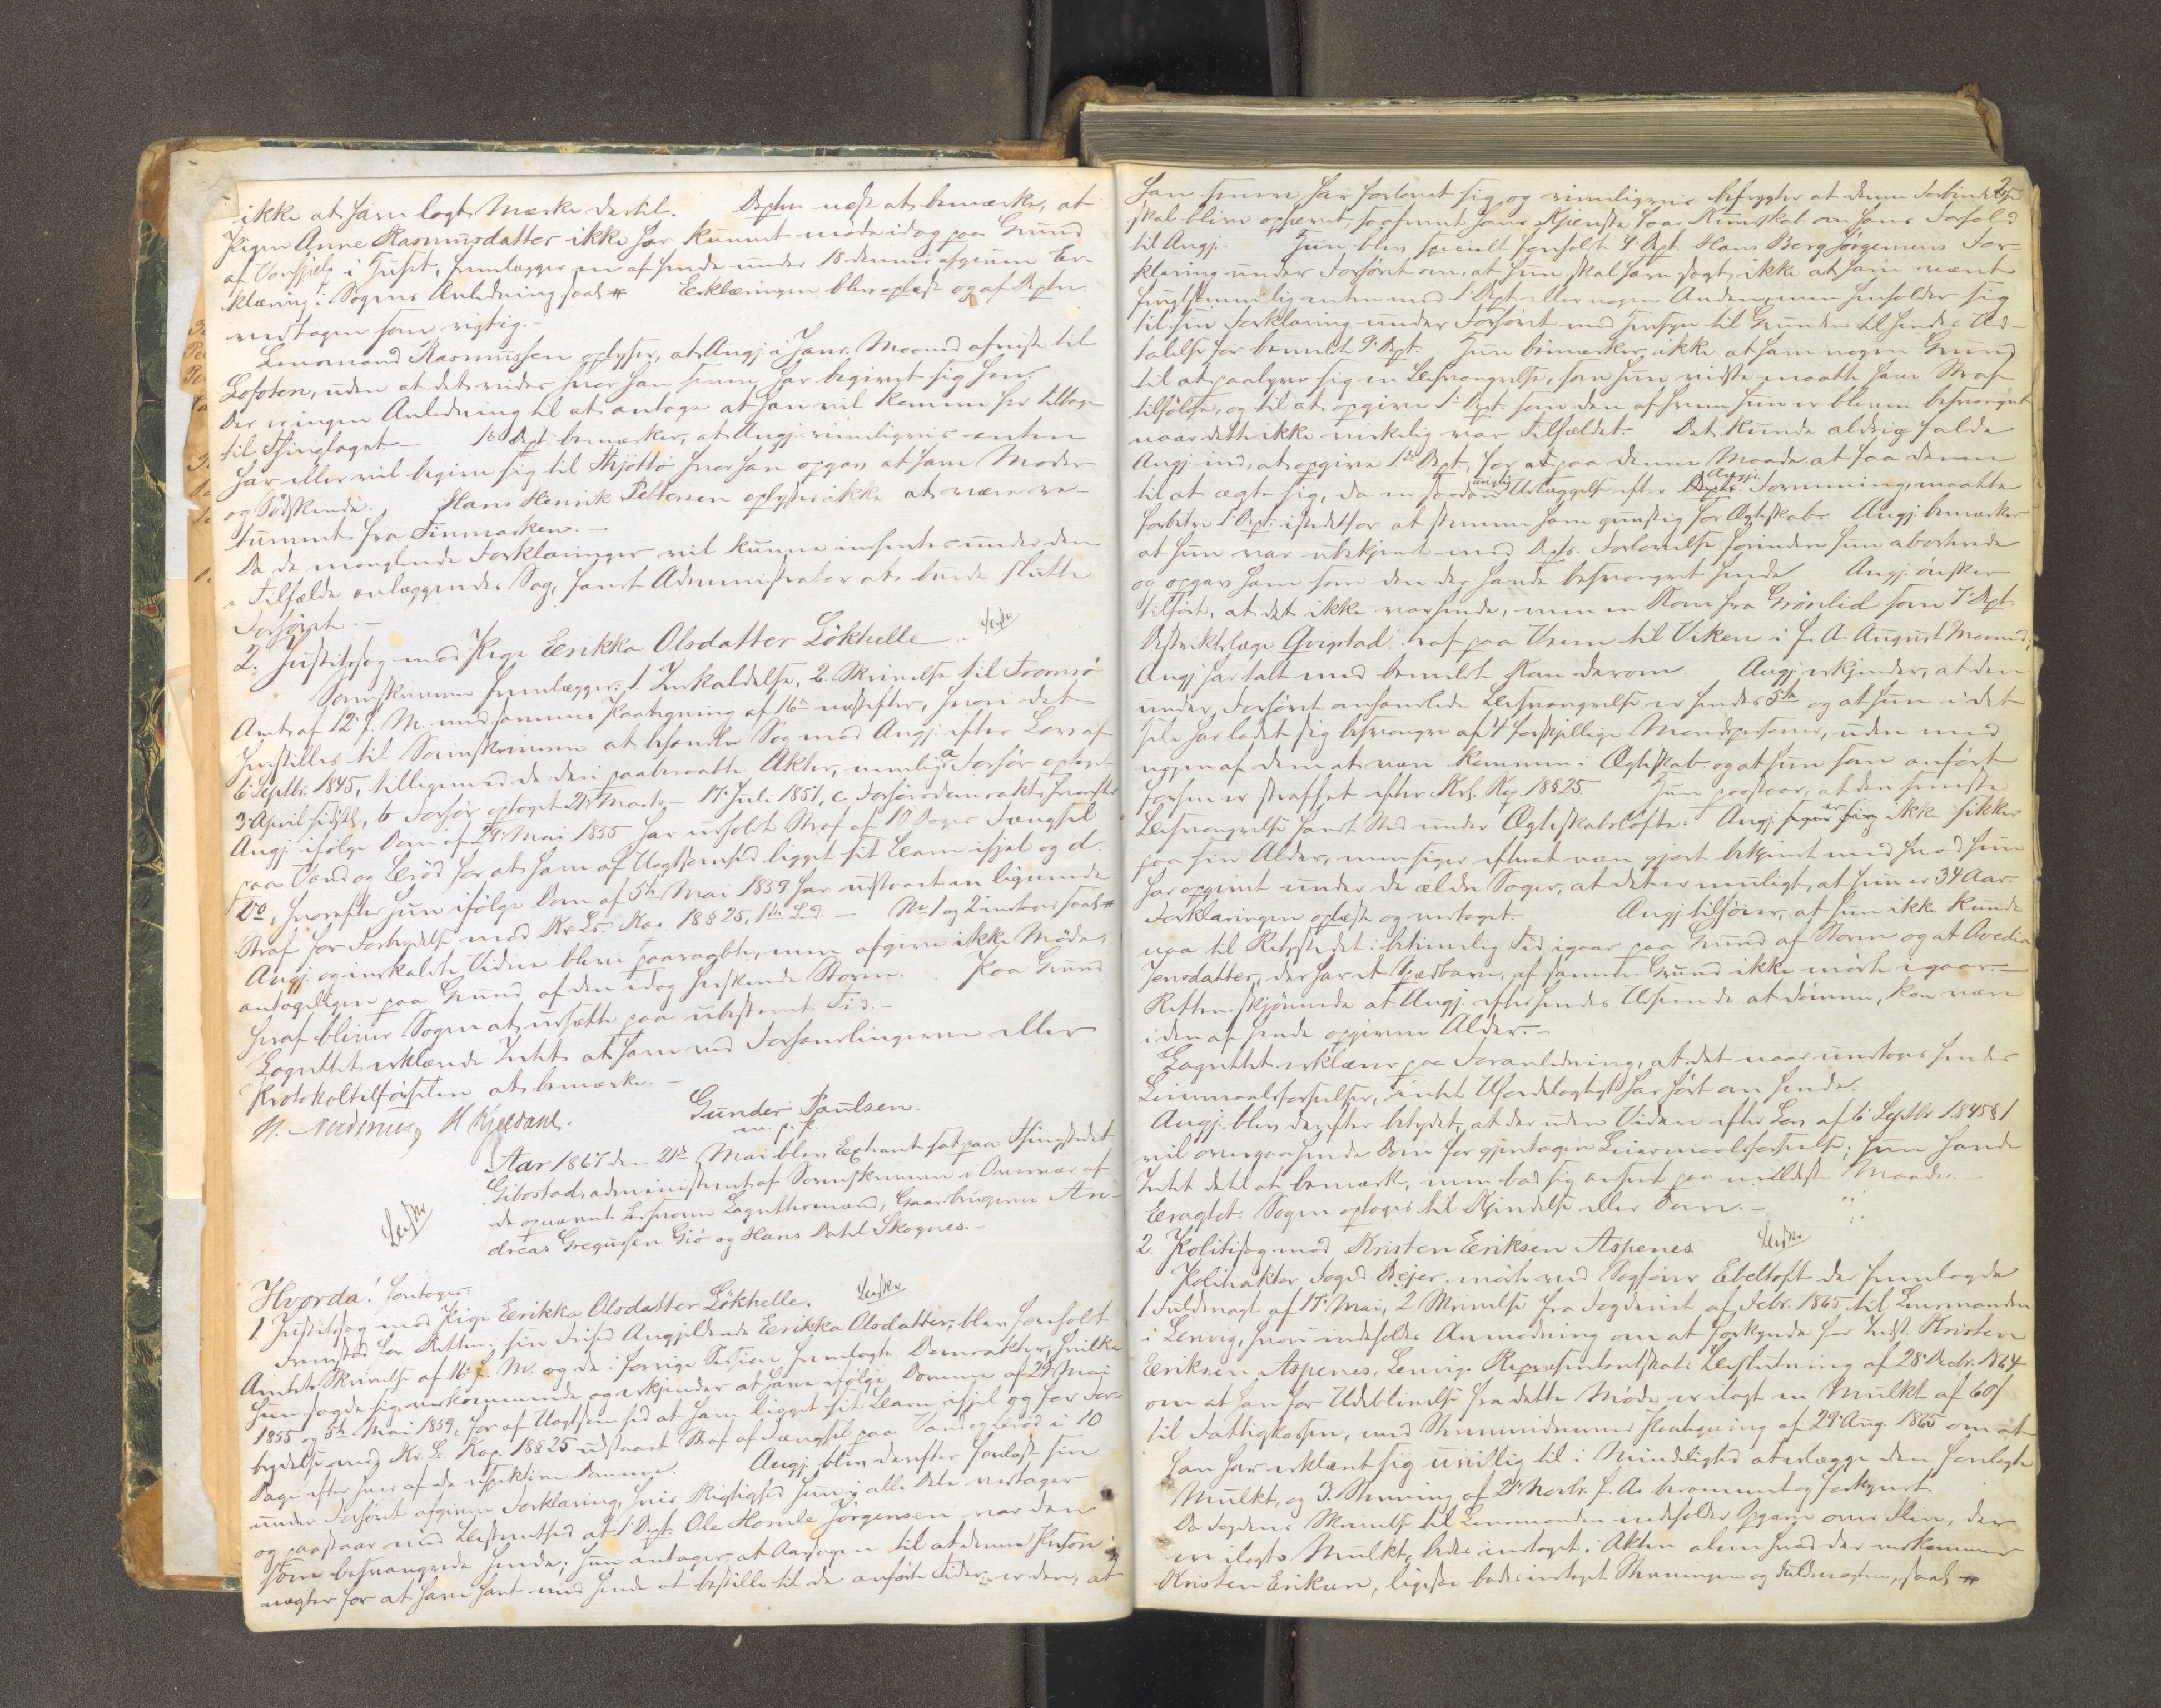 ikke at have lagt Mærke dertil. Depten nøst at bemærke, at
Pigen Anne Rasmusdatter ikke har kunnet møde idag paa Grund
af Vanhjelp i Huset, fremlægger en af hende under 18 dennes afgiven Er-
klæring i Sagens Anledning saal. # Erklæringen blev oplæst og af Depten
vedtagen som rigtig.-
Lensmand Rasmussen oplyser, at Angj. i Janr. Maaned afreiste til
Lofoten, uden at det vides hvor han senere har begivet sig hen.
Der er ingen Anledning til at antage at han vil komme her tilbage
til Thinglaget.- 1ste Dept. bemærker, at Angj. rimeligvis enten
har eller vil begive sig til Thjøttø hvor han opgav at have Moder
og Sødskende. Hans Henrik Pettersen oplyses ikke at være re-
tourneret fra Finmarken.-
Da de manglende Forklaringer vil kunne indhentes under den
i Tilfælde anlæggendes Sag, fandt Administrator at burde slutte
Forhøret.-
2. Justitssag mod Pige Erikka Olsdatter Lökhelle.
Sorenskriveren fremlægger: 1. Indkaldelse, 2. Skrivelse til Tromsø
Amt af 12 f. M. med sammes Paategning af 16de næstefter, hvori det
henstilles til Sorenskriveren at behandle Sag mod Angj. efter Lov af
6 Septbr. 1845, tilligemed de deri paaberaabte Akter, nemlig: a Forhør optaget
3 April sidstl., b Forhør optaget 21 Marts - 17 Juli 1857, c Forhørsdomsakt hvorefter
Angj. ifølge Dom af 24 Mai 1855 har udholdt Straf af 10 Dages Fængsel
paa Vand og Brød for at have af Uagtsomhed ligget sit Barn ihjel og d.
Do, hvorefter hun ifølge Dom af 5te Mai 1859 har udstaaet en lignende
Straf for Forbrydelse mod Kr. L. Kap. 18 § 25, 1ste Led. - No 1 og 2 indtages saal. #
Angj. og indkaldte Vidner bleve paaraabte, men afgive ikke Møde,
antageligen paa Grund af den idag herskende Storm. Paa Grund
heraf bliver Sagen at udsætte paa ubestemt Tid.-
Lagrettet erklærede Intet at have ved Forhandlingerne eller
Protokoltilførselen at bemærke.-
N. H Kjeldahl. Gunder Paulsen.
m. p. p.
Aar 1867 den 21de Mai blev Extraret sat paa Thingstedet
Gibostad, administreret af Sorenskriveren i Overvær af
de opnævnte Edsvorne Lagrettesmænd, Gaardbrugerne An-
dreas Gregusen Giö og Hans Dahl Skognes.-
Hvorda! foretages
1. Justitssag mod Pige Erikka Olsdatter Lökhelle.
Fremstod for Retten i sin Frihed Angjeldende Erikka Olsdatter, blev foreholdt
Amtets Skrivelse af 16 f. M. og de i forrige Session fremlagte Domsakter, hvilke
hun sagde sig vedkommende og erkjender at have ifølge Domme af 24 Mai
1855 og 5te Mai 1859, for af Uagtsomhed at have ligget sit Barn ihjel og for For-
brydelse mod Kr. L. Kap. 18 § 25 udstaaet Straf af Fængsel paa Vand og Brød i 10
Dage efter hver af de respektive Domme. Angj. blev derefter forelæst sin
under Forhøret afgivne Forklaring, hvis Rigtighed hun i alle Dele vedtager
og paastaar med Bestemthed at 1 Dept. Ole Hornle Jörgensen var den
som besvangrede hende; hun antager, at Aarsagen til at denne Person
nægter for at have havt med hende at bestille til de anførte Tider er den, at
2
han senere har forlovet sig og rimeligvis befrygter at denne Forbindelse
skal blive ophævet, saafremt hans Kjæreste faar Kundskab om hans Forhold
til Angj. Hun blev specielt foreholdt 9 Dept. Hans Berg Jörgensens For-
klaring under Forhøret om, at hun skal have sagt ikke at have været
frugtsommelig enten med 1 Dept. eller nogen Anden, men henholder sig
til sin Forklaring under Forhøret med Hensyn til Grunden til hendes Ud-
talelse for bemeldte 9 Dept. Hun bemærker, ikke at have nogen Grund
til at paalyve sig en Besvangrelse, som hun vidste maatte have Straf
tilfølge, og til at opgive 1 Dept. som den af hvem hun er bleven besvangret
naar dette ikke virkelig var Tilfældet. Det kunde aldrig falde
Angj. ind, at opgive 1ste Dept. for at paa denne Maade at faa denne
til at ægte sig, da en saadan urigtig Udlæggelse efter Angj. Formening, maatte
forbitre 1 Dept. istedetfor at stemme ham gunstig for Ægteskab. Angj. bemærker
at hun var ubekjendt med Depts. Forlovelse forinden hun aborterede
og opgav ham som den der havde besvangret hende. Angj. ønsker
tilført, at det ikke var hende, men en Kone fra Grönlid som 1 Dept.
Distriktslæge Qvigstad traf paa Veien til Viken i f. A. August Maaned,
Angj. har talt med bemeldte Kone derom. Angj. erkjender, at den
under Forhøret omhandlede Besvangrelse er hendes 5te og at hun i det
Hele har ladet sig besvangre af 4 forskjellige Mandspersoner, uden med
nogen af dem at være kommen i Ægteskab og at hun som anført
forhen er straffet efter Kr. L. Kap. 18 § 25. Hun paastaar, at den seneste
Besvangrelse fandt Sted under Ægteskabsløfte. Angj. er ikke sikker
paa sin Alder, men siger efterat være gjort bekjendt med hvad hun
har opgivet under de ældre Sager, at det er muligt, at hun er 34 Aar.
Forklaringen oplæst og vedtaget. Angj. tilføier, at hun ikke kunde
naa til Retsstedet i betimelig Tid igaar paa Grund af Storm og at Ovedia
Jensdatter, der har et Spædbarn, af samme Grund ikke mødte igaar.-
Retten skjønnede at Angj. efter hendes Udseende at dømme, kan være
i den af hende opgivne Alder.-
Lagrettet erklærer paa Foranledning, at det naar undtages hendes
Leiermaalsforseelser, intet Ufordelagtigt har hørt om hende.
Angj. blev derefter betydet, at der uden Videre efter Lov af 6 Septbr. 1845 § 1
vil overgaa hende Dom for gjentagen Leiermaalsforseelse; hun havde
Intet dertil at bemærke, men bad sig anseet paa mildeste Maade.-
Eragtet: Sagen optages til Kjendelse eller Dom.-
2. Politisag mod Kristen Eriksen Aspenes
Politiaktor, Foged Drejer mødte ved Sagfører Ebeltoft der fremlagde
1 Fuldmagt af 17 Mai, 2 Skrivelse fra Fogderiet af Febr. 1865 til Lensmanden
i Lenvig, hvori indeholdes Anmodning om at forkynde for Indst. Kristen
Eriksen Aspenes, Lenvigs Repræsentantskabs Beslutning af 28 Decbr. 1864
om at han for Udeblivelse fra dette Møde er ilagt en Mulkt af 60 ß
til Fattigkassen, med Paategning af 29 Aug. 1865 om at
han har erklæret sig uvillig til i Mindelighed at erlægge den forelagte
Mulkt, og 3. Stevning af 21 Novbr. f. A. berammet og forkyndt.
Da Fogdens Skrivelse til Lensmanden indeholder Opgave over Flere, der
er ilagte Mulkt, bedes indtaget i Akten alene hvad der vedkommer
Kristen Eriksen, ligesaa bedes indtaget Stevningen og Fuldmagten, saal. #